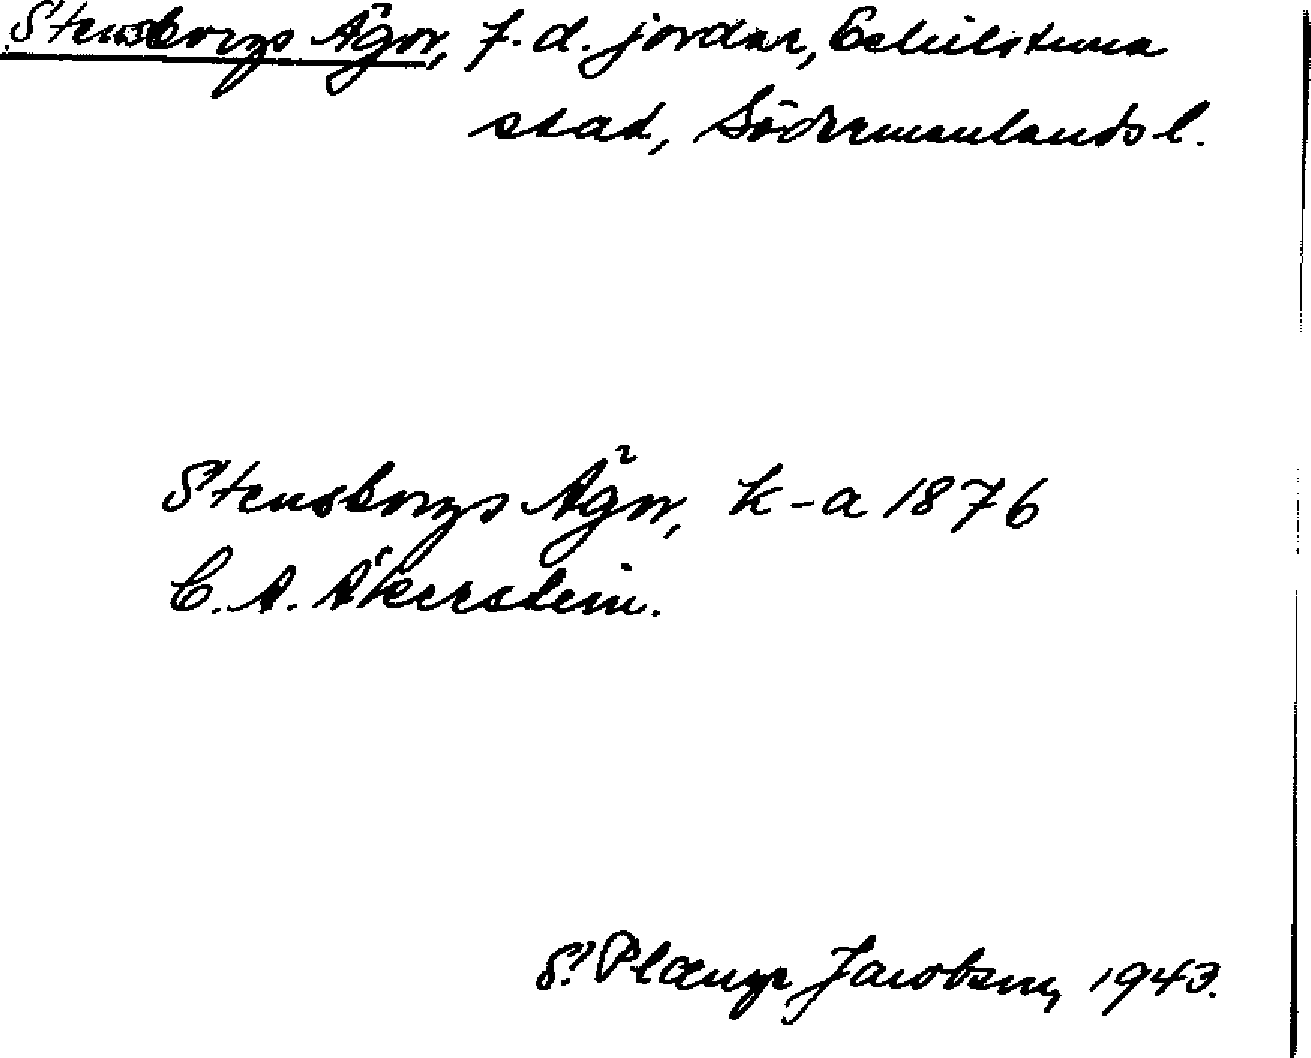 Stensborgs Ägor, f.d. jordar, Eskilstuna
stad, Södermanlands l.
Stensborgs Ägor, k-a 1876
C. A. Åkerstein.
S. Plænge Jacobson, 1943.